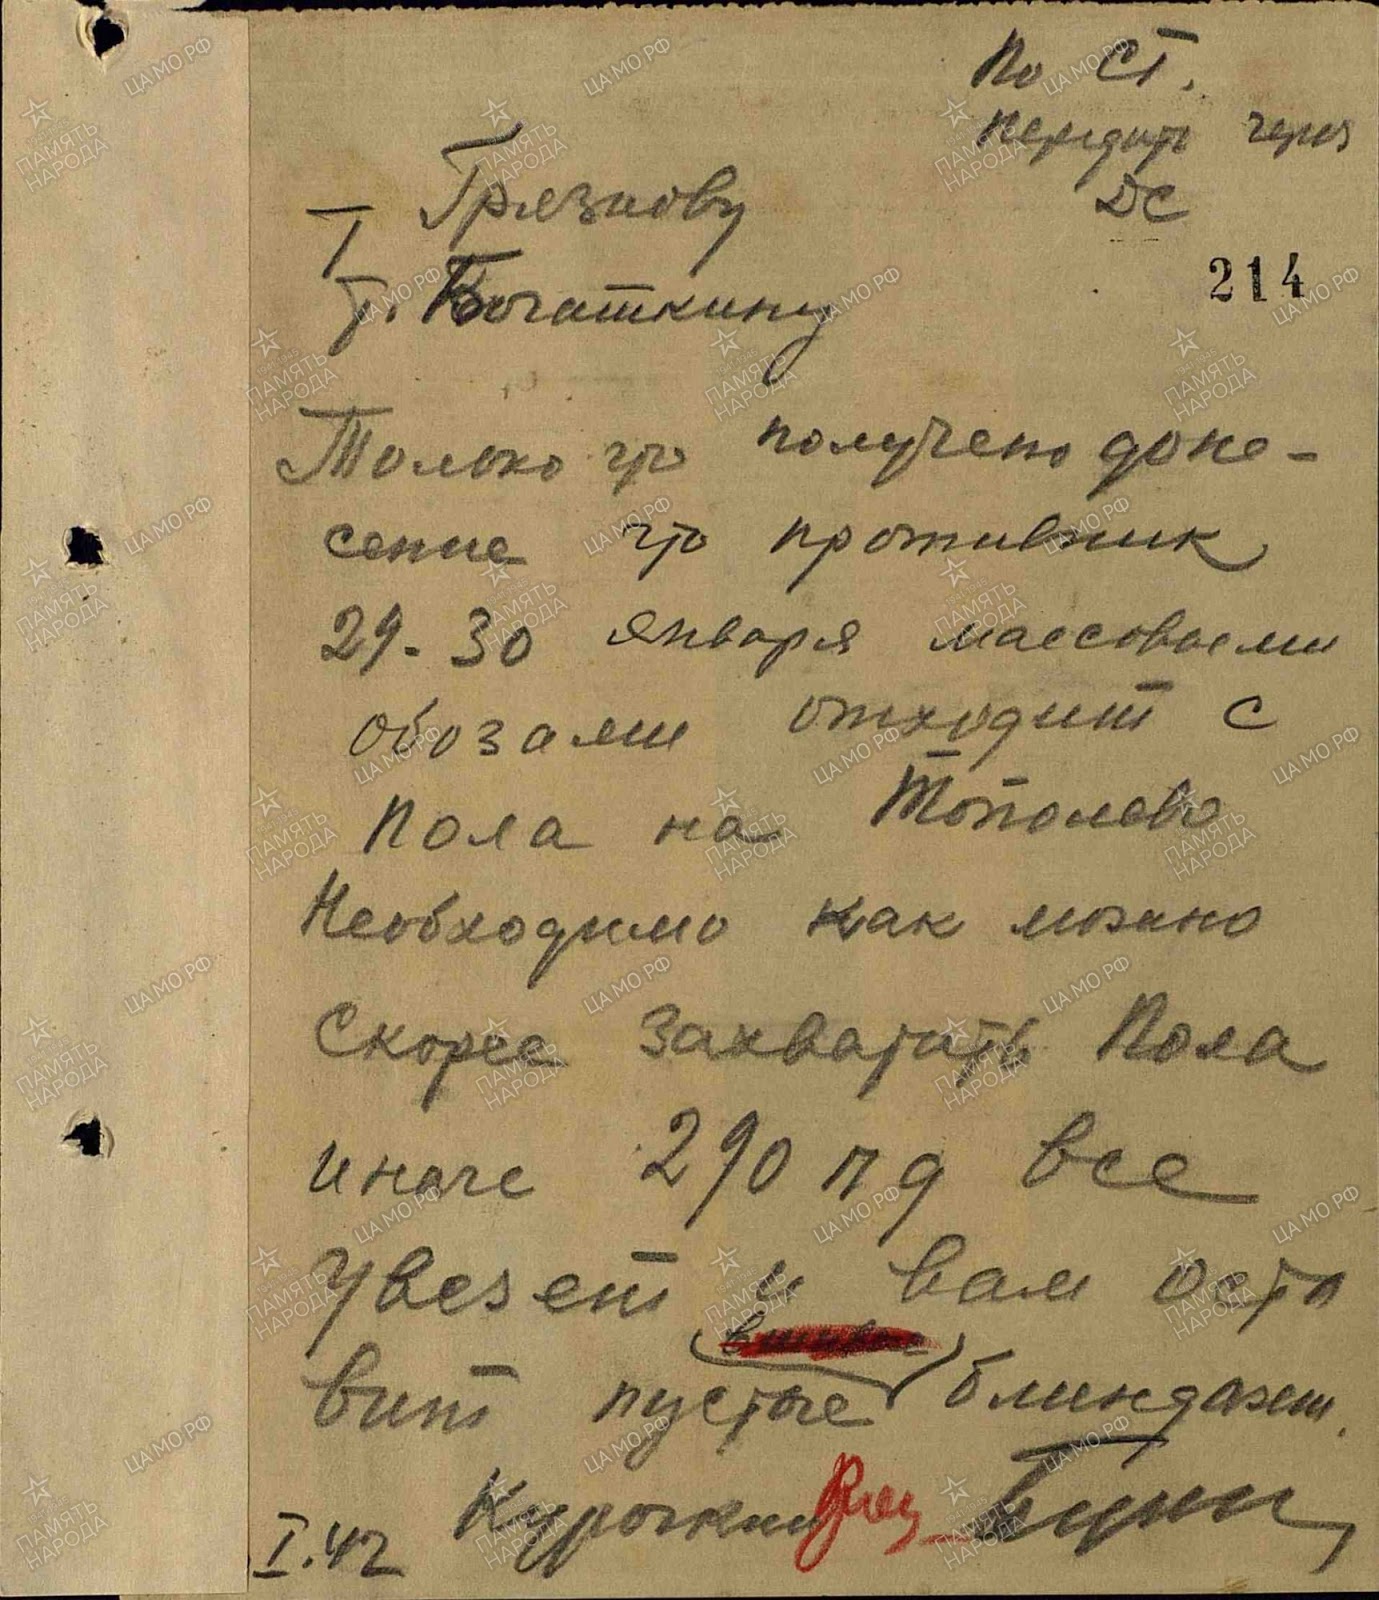 По СТ.
Передать через
ДС
Грязнову
т. Богаткину
214
Только что получено доне-
сение что противник
29-30 января массовыми
обозами отходит с
Пола на Тополево
Необходимо как можно
скорее захватить Пола
иначе 290 пд все
увезет и вам оста
вит пустые блиндажи.
Курочкин
Бумн
I.42
ПАМЯТЬ НАРОДА
ЦАМО РФ